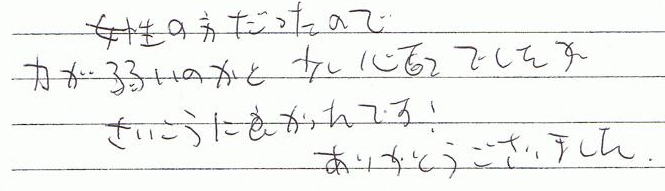 女性の方だったので
力が弱いのかと少し心配でしたが
さいこうに良かったです!
ありがとうございました.